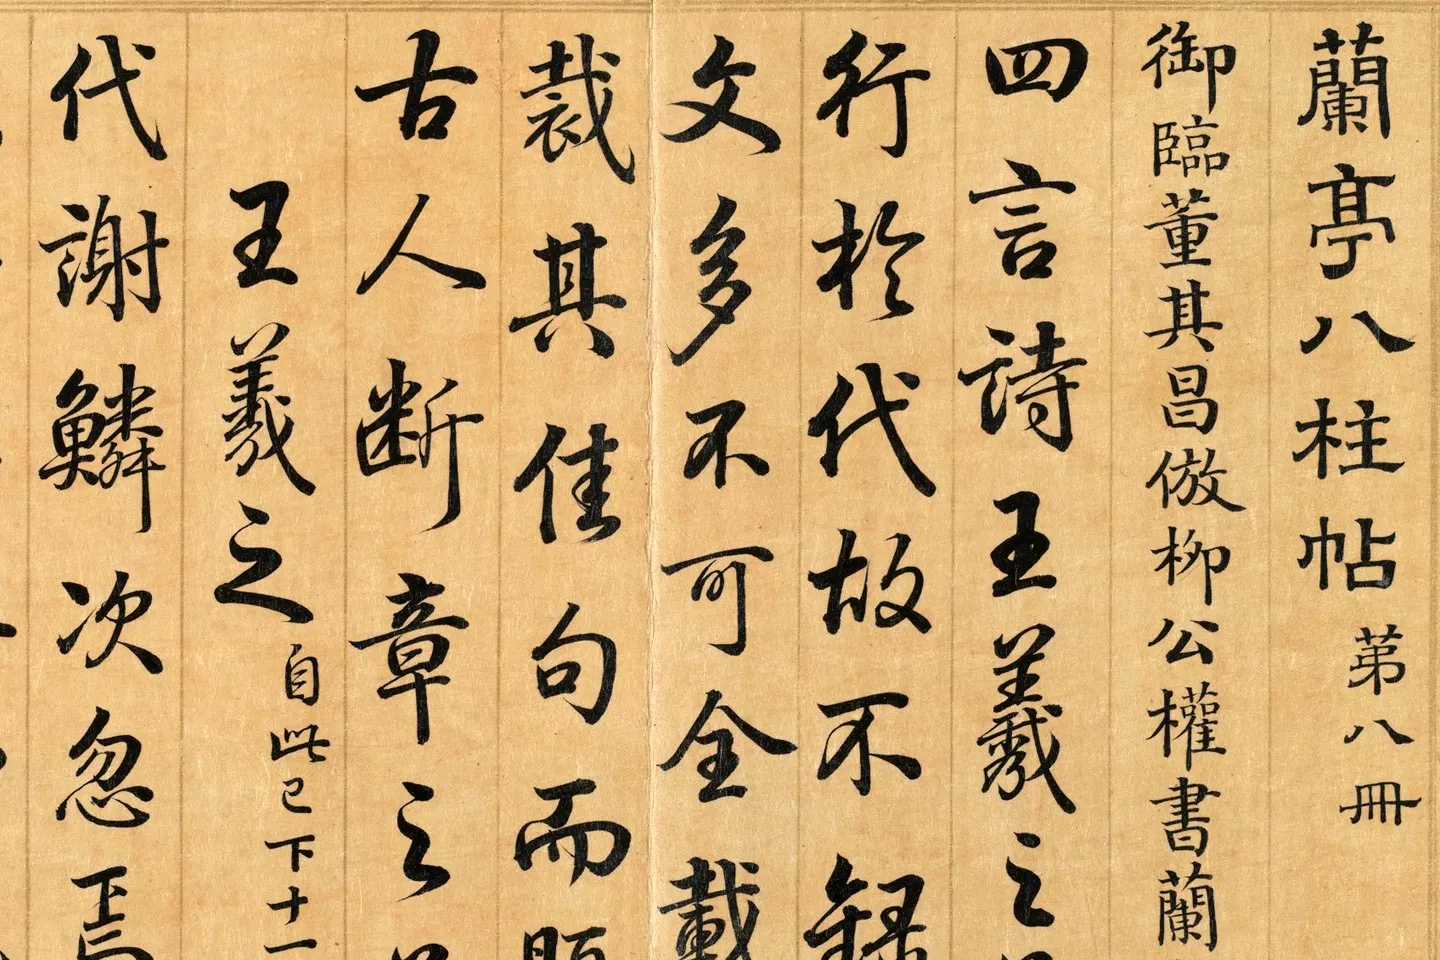 蘭亭八柱帖 第八冊
御臨董其昌倣柳公權書蘭
四言詩王羲之
行於代故不録
文多不可全載
裁其佳句而
古人断章之
王羲之 自此已下十一
代謝鱗次忽焉